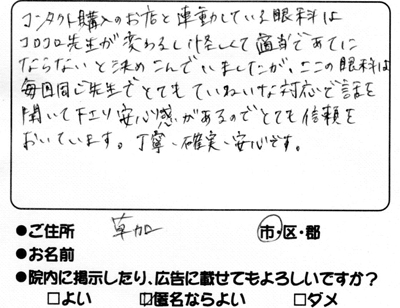 コンタクト購入のお店と連動している眼科は
コロコロ先生が変わるし怪しくて適当であてに
ならないと決めこんでいましたが、ここの眼科は
毎回同じ先生でとてもていねいな対応で話を
聞いて下さり安心感があるのでとても信頼を
おいています。丁寧・確実・安心です。
●ご住所 草加 市・区・郡
●お名前
●院内に掲示したり、広告に載せてもよろしいですか？
□よい □匿名ならよい □ダメ